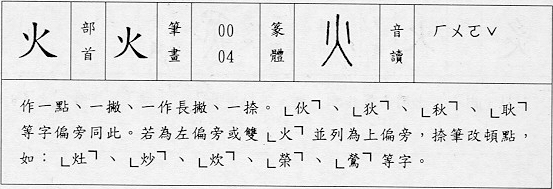 火 部首 火 筆畫 00 04 篆體 火 音讀 ㄏㄨㄛˇ
作一點、一撇、一作長撇、一捺。「伙」、「狄」、「秋」、「耿」
等字偏旁同此。若為左偏旁或雙「火」並列為上偏旁，捺筆改頓點，
如：「灶」、「炒」、「炊」、「榮」、「鶯」等字。